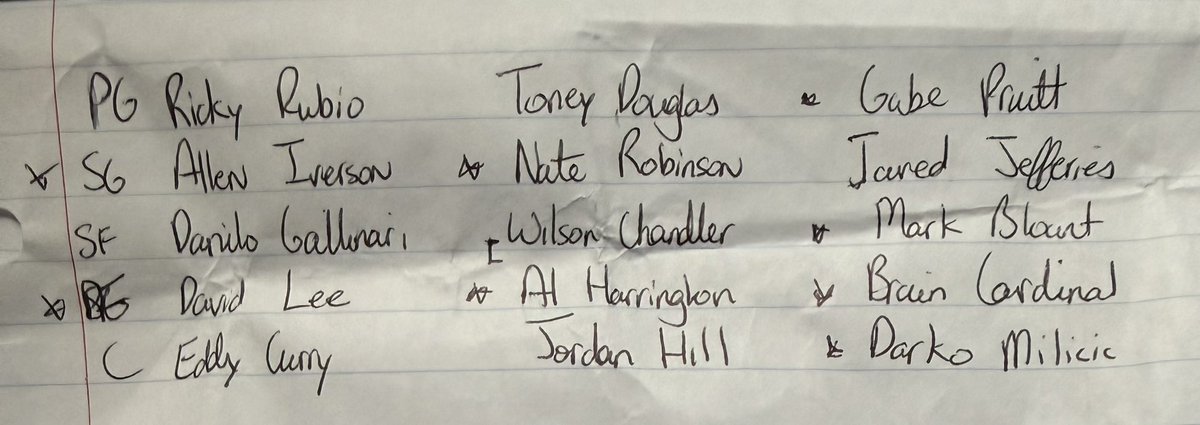 PG Ricky Rubio Toney Douglas Gabe Pruitt
SG Allen Iverson Nate Robinson Jared Jefferies
SF Danilo Gallinari Wilson Chandler Mark Blount
David Lee Al Harrington Brain Cardinal
C Eddy Curry Jordan Hill Darko Milicic